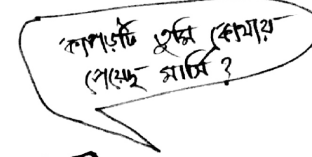 কাপড়টি তুমি কোথায়
পেয়েছ মার্সি ?